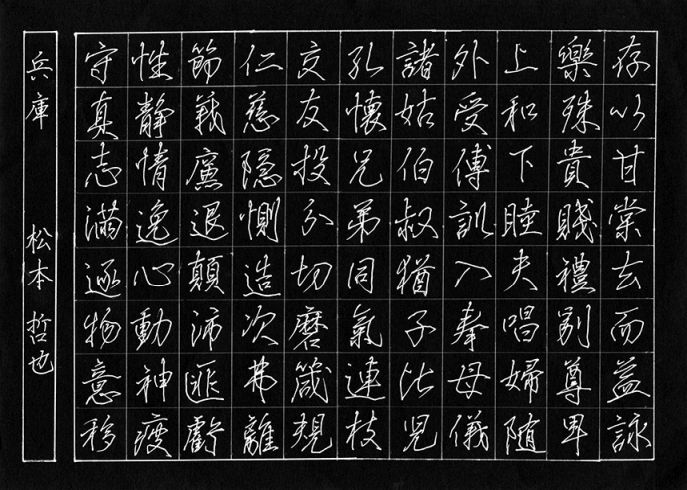 存以甘棠去而益詠
樂殊貴賤禮別尊卑
上和下睦夫唱婦随
外受傅訓入奉母儀
諸姑伯叔猶子比児
孔懐兄弟同氣連枝
交友投分切磨箴規
仁慈隠惻造次弗離
節義廉退顛沛匪虧
性静情逸心動神疲
守真志満逐物意移
兵庫 松本哲也